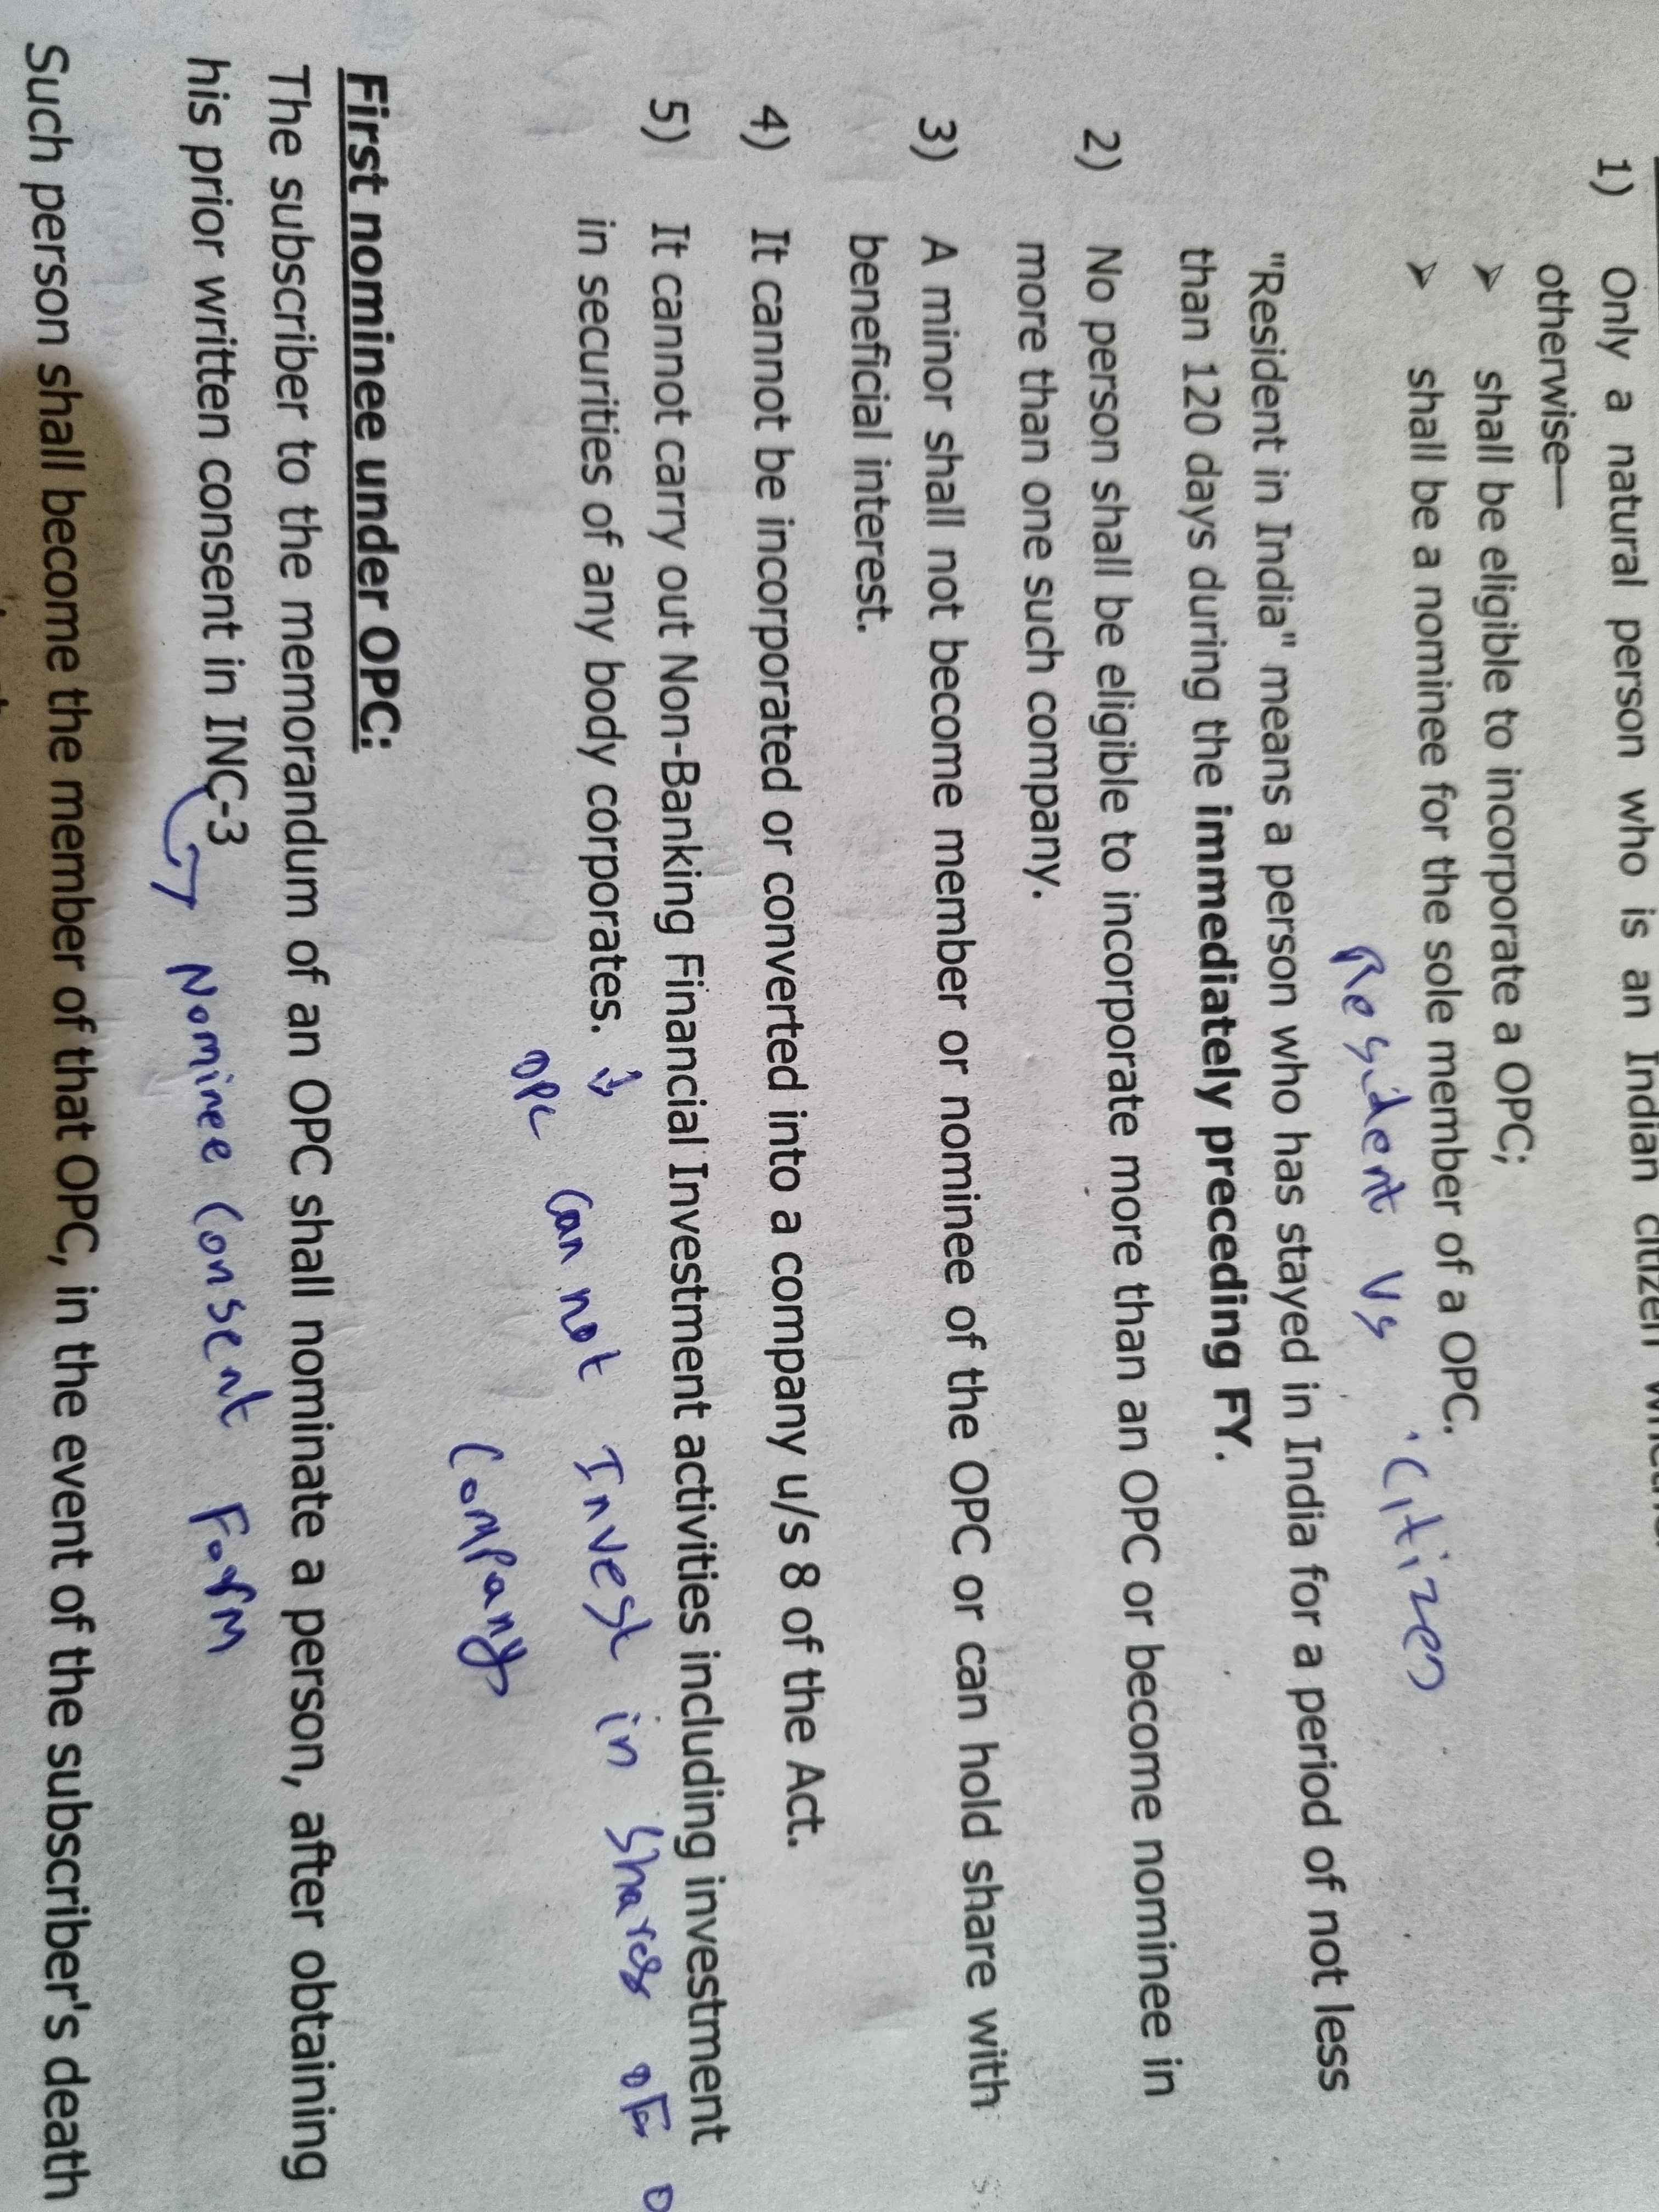 1) Only a natural person who is an Indian citizen
otherwise—
➢ shall be eligible to incorporate a OPC;
➢ shall be a nominee for the sole member of a OPC.
Resident Vs Citizen
"Resident in India" means a person who has stayed in India for a period of not less
than 120 days during the immediately preceding FY.
2) No person shall be eligible to incorporate more than an OPC or become nominee in
more than one such company.
3) A minor shall not become member or nominee of the OPC or can hold share with
beneficial interest.
4) It cannot be incorporated or converted into a company u/s 8 of the Act.
5) It cannot carry out Non-Banking Financial Investment activities including investment
in securities of any body corporates.
OPC can not Invest in shares of
Company
First nominee under OPC:
The subscriber to the memorandum of an OPC shall nominate a person, after obtaining
his prior written consent in INC-3
Nominee Consent Form
Such person shall become the member of that OPC, in the event of the subscriber's death